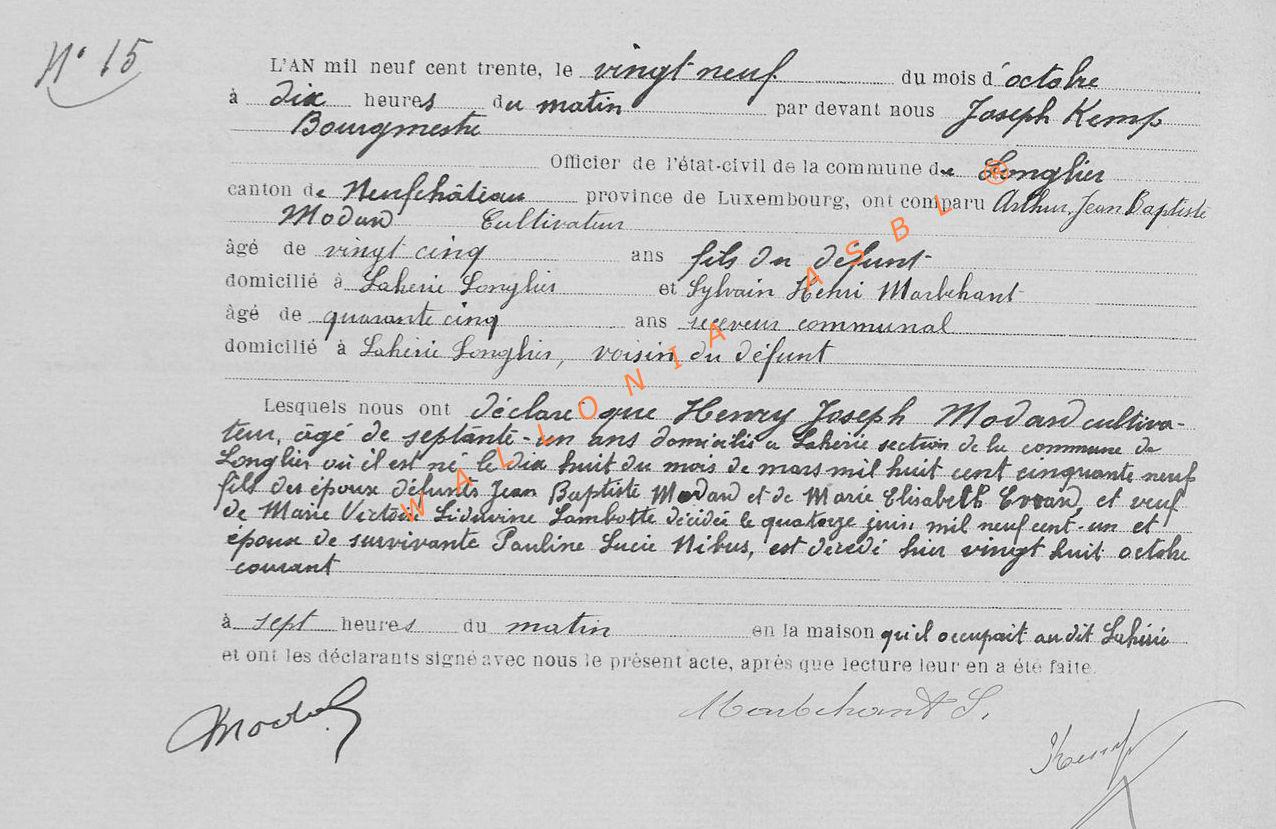 N° 15
L'AN mil neuf cent trente, le vingt neuf du mois d'octobre
à dix heures du matin par devant nous Joseph Kemp
Bourgmestre
Officier de l'état-civil de la commune de Longlier
canton de Neufchâteau province de Luxembourg, ont comparu Arthur, Jean Baptiste
Modard Cultivateur
âgé de vingt cinq ans fils du défunt
domicilié à Laherie Longlier et Sylvain Henri Marbehant
âgé de quarante cinq ans receveur communal
domicilié à Laherie Longlier, voisin du défunt
Lesquels nous ont déclaré que Henry Joseph Modard cultiva-
teur, âgé de septante-un ans domicilié à Laherie section de la commune de
Longlier où il est né le dix huit du mois de mars mil huit cent cinquante neuf
fils des époux défunts Jean Baptiste Modard et de Marie Elisabeth et veuf
de Marie Victoire Liduvine Lambotte décédée le quatorze juin mil neuf cent-un et
époux de survivante Pauline Lucie Nibus, est décédé hier vingt huit octobre
courant
à sept heures du matin en la maison qu'il occupait au dit Laherie
et ont les déclarants signé avec nous le présent acte, après que lecture leur en a été faite.
Modard
Marbehant S.
Kemp
WALLONIA ASBL ®